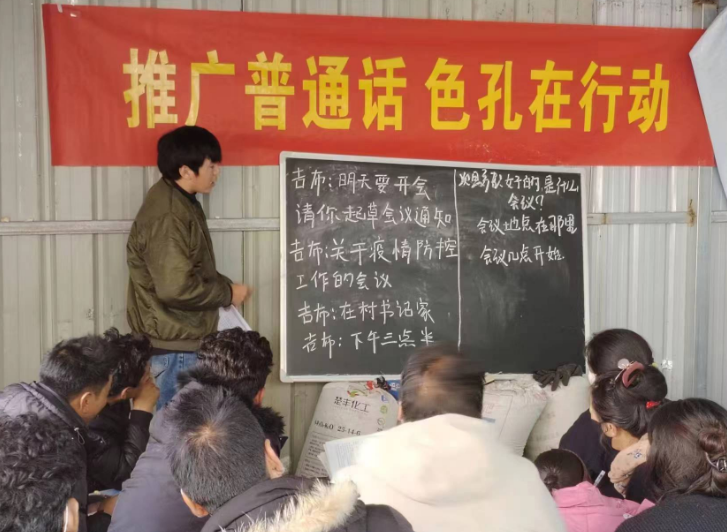 推广普通话 色孔在行动
吉布:明天要开会
请你起草会议通知
吉布:关于疫情防控
工作的会议
吉布:在村书记家
吉布:下午三点半
好的,是什么
会议?
会议地点在那里
会议几点开始
楚丰化工